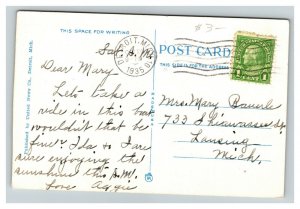 THIS SPACE FOR WRITING
$3-
DETROIT, MICH.
1935
POST CARD
Sat. P.M.
Dear Mary
Let's take a
ride in this boat
wouldn't that be
fine? Ida & I are
sure enjoying the
sunshine this P.M.
Love Aggie
Mrs. Mary Bauerl
733 Shiawassee
Lansing
Mich.
1
CENT
Published by United News Co., Detroit, Mich.